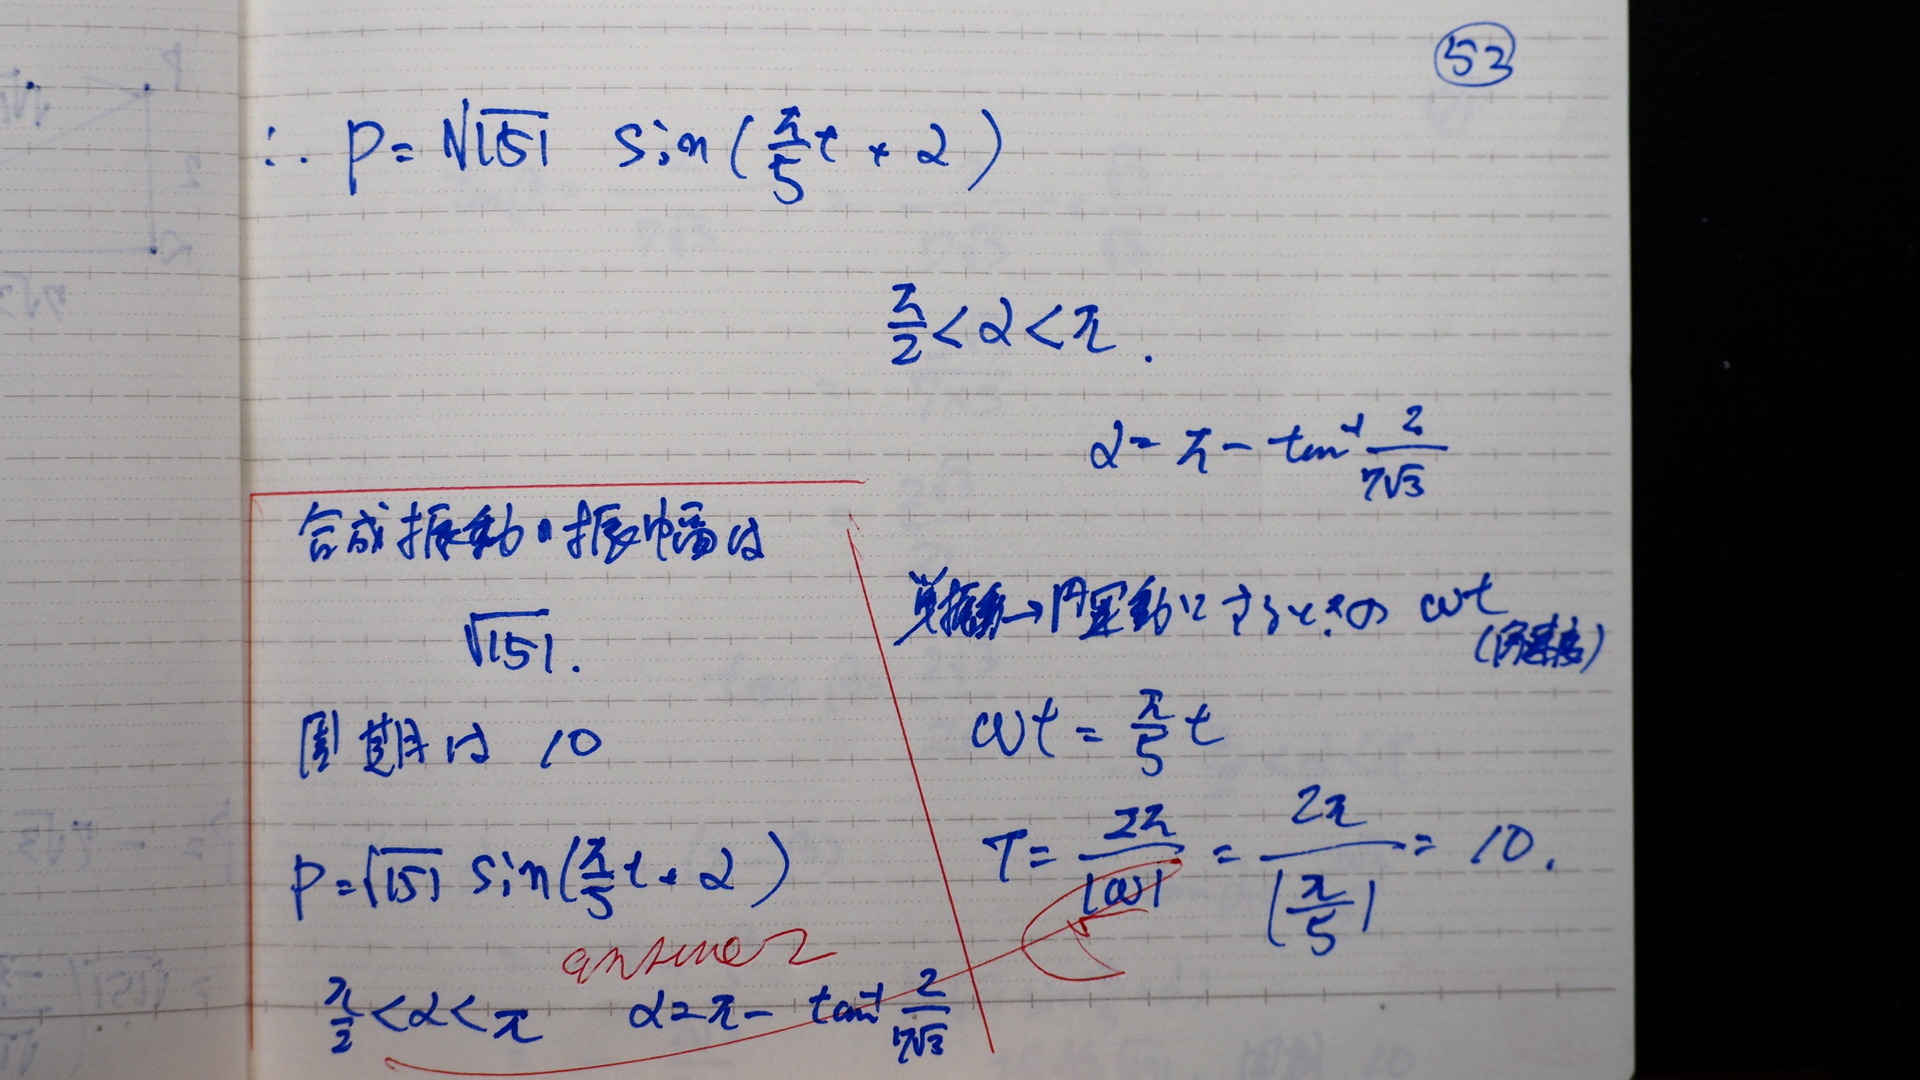 53
∴ P = √151 sin(π/5 t + α)
π/2 < α < π.
α = π - tan⁻¹ 2/7√3
合成振動の振幅は
√151.
周期は 10
P = √151 sin(π/5 t + α)
answer
π/2 < α < π  α = π - tan⁻¹ 2/7√3
単振動→円運動にするときの ωt
(角速度)
ωt = π/5 t
T = 2π/|ω| = 2π/|π/5| = 10.